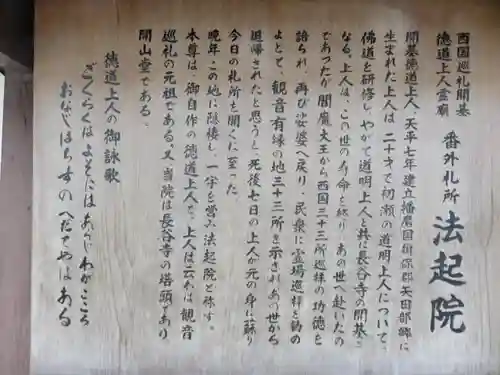 西国巡礼開基
徳道上人霊廟
番外札所
法起院
開基徳道上人、天平七年建立、播磨国揖保郡矢田部の郷に
生まれた上人は、二十才で初瀬の道明上人について、
佛道を研修し、やがて道明上人と共に長谷寺の開基と
なる。上人は、この世の寿命を終り、あの世へ赴いたの
であったが閻魔大王から西国三十三所巡拝の功徳を
諭られ、再び娑婆へ戻り、民衆に霊場巡拝を勧め
よとて、観音有縁の地三十三所を示されあの世から
追帰されたと思うと、死後七日の上人が元の身に蘇り
今日の札所を開くに至った
晩年、この地に隠棲し、一宇を営み法起院と称す。
本尊は、御自作の徳道上人で、上人は云わば、観音
巡礼の元祖である。又、当院は長谷寺の塔頭であり
開山堂である。
徳道上人の御詠歌
ごくらくは よそにはあらじ わがこころ
おなじはちすの へだてやはある